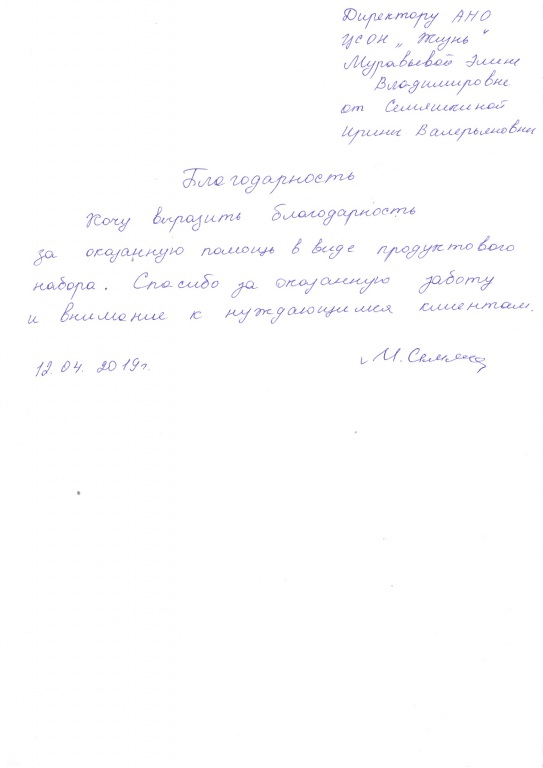 Директору АНО
ЦСОН „Жизнь“
Муравьевой Элине
Владимировне
от Семяшкиной
Ирины Валерьяновны
Благодарность
Хочу выразить благодарность
за оказанную помощь в виде продуктового
набора. Спасибо за оказанную заботу
и внимание к нуждающимся клиентам.
12.04.2019г.